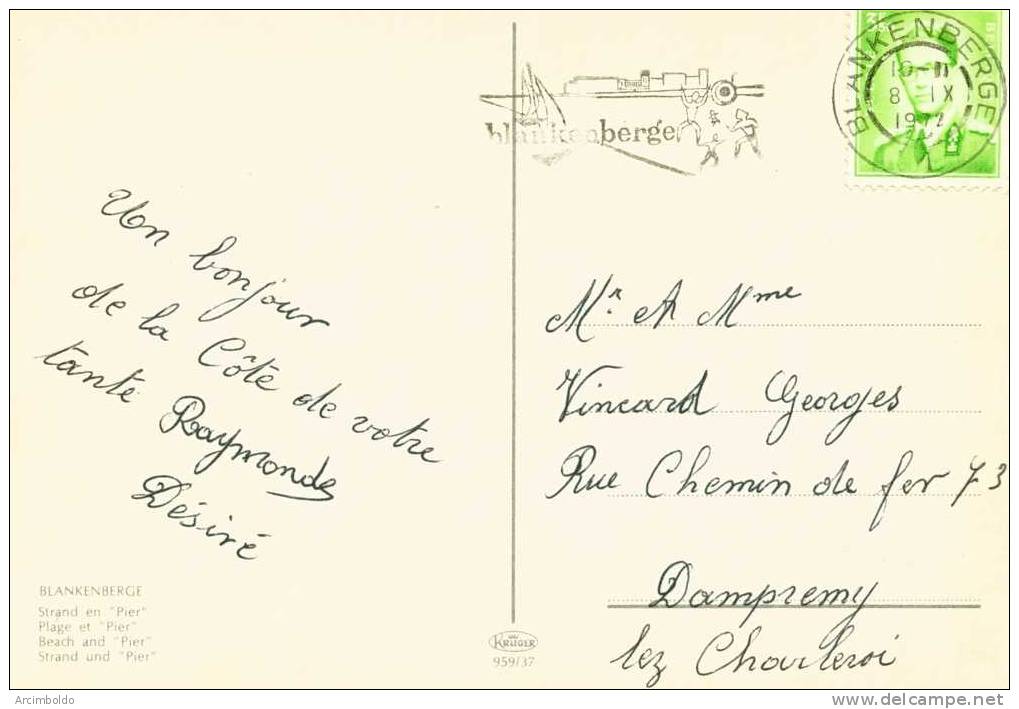 blankenberge
BLANKENBERGE 1
8 IX
Un bonjour
de la Côte de votre
tante Raymonde
Désiré
Mr et Mme
Vincard Georges
Rue Chemin de fer 73
Dampremy
lez Charleroi
BLANKENBERGE
Strand en "Pier"
Plage et "Pier"
Beach and "Pier"
Strand und "Pier"
KRÜGER
959/37
Arcimboldo
delcampe.net